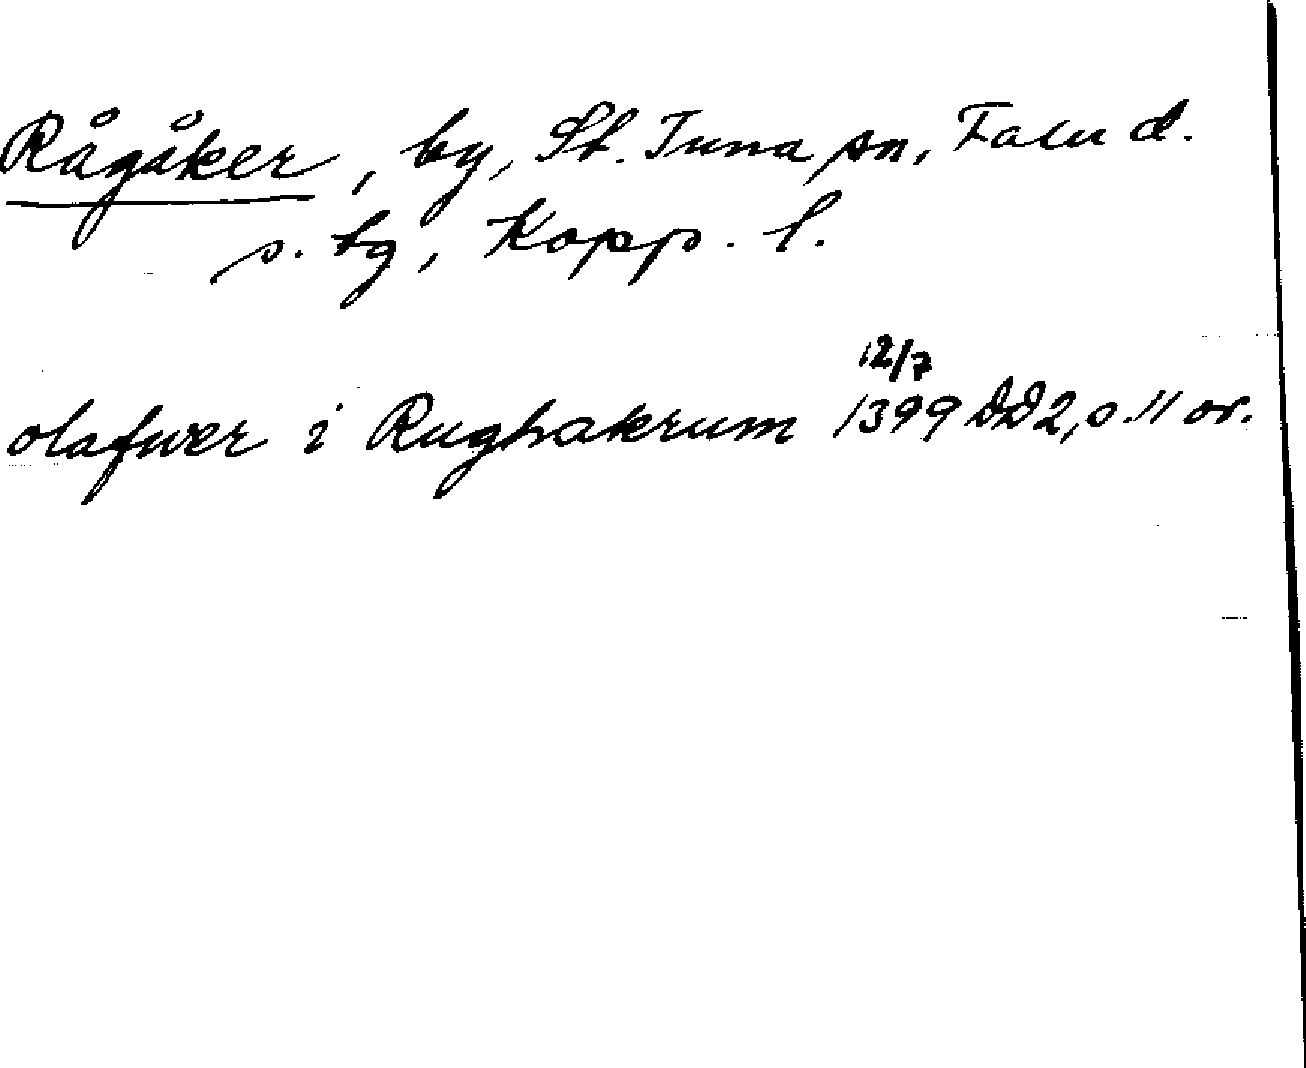 Rågåker, by, St. Tuna sn, Falu d.
s. bg, Kopp. l.
12/7
olafwer i Rughakrum 1399 DD2, s. 11 or.